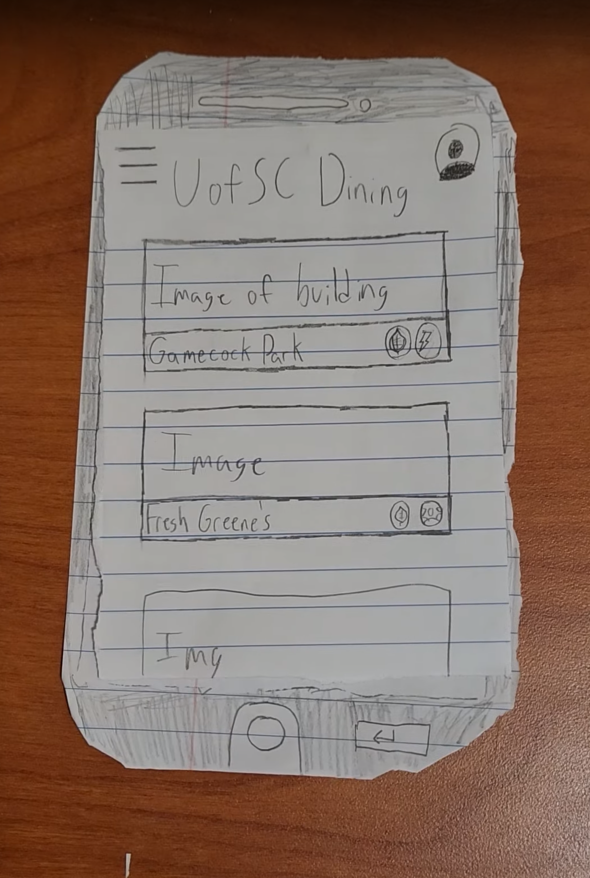 UofSC Dining
Image of building
Gamecock Park
Image
Fresh Greene's
Img